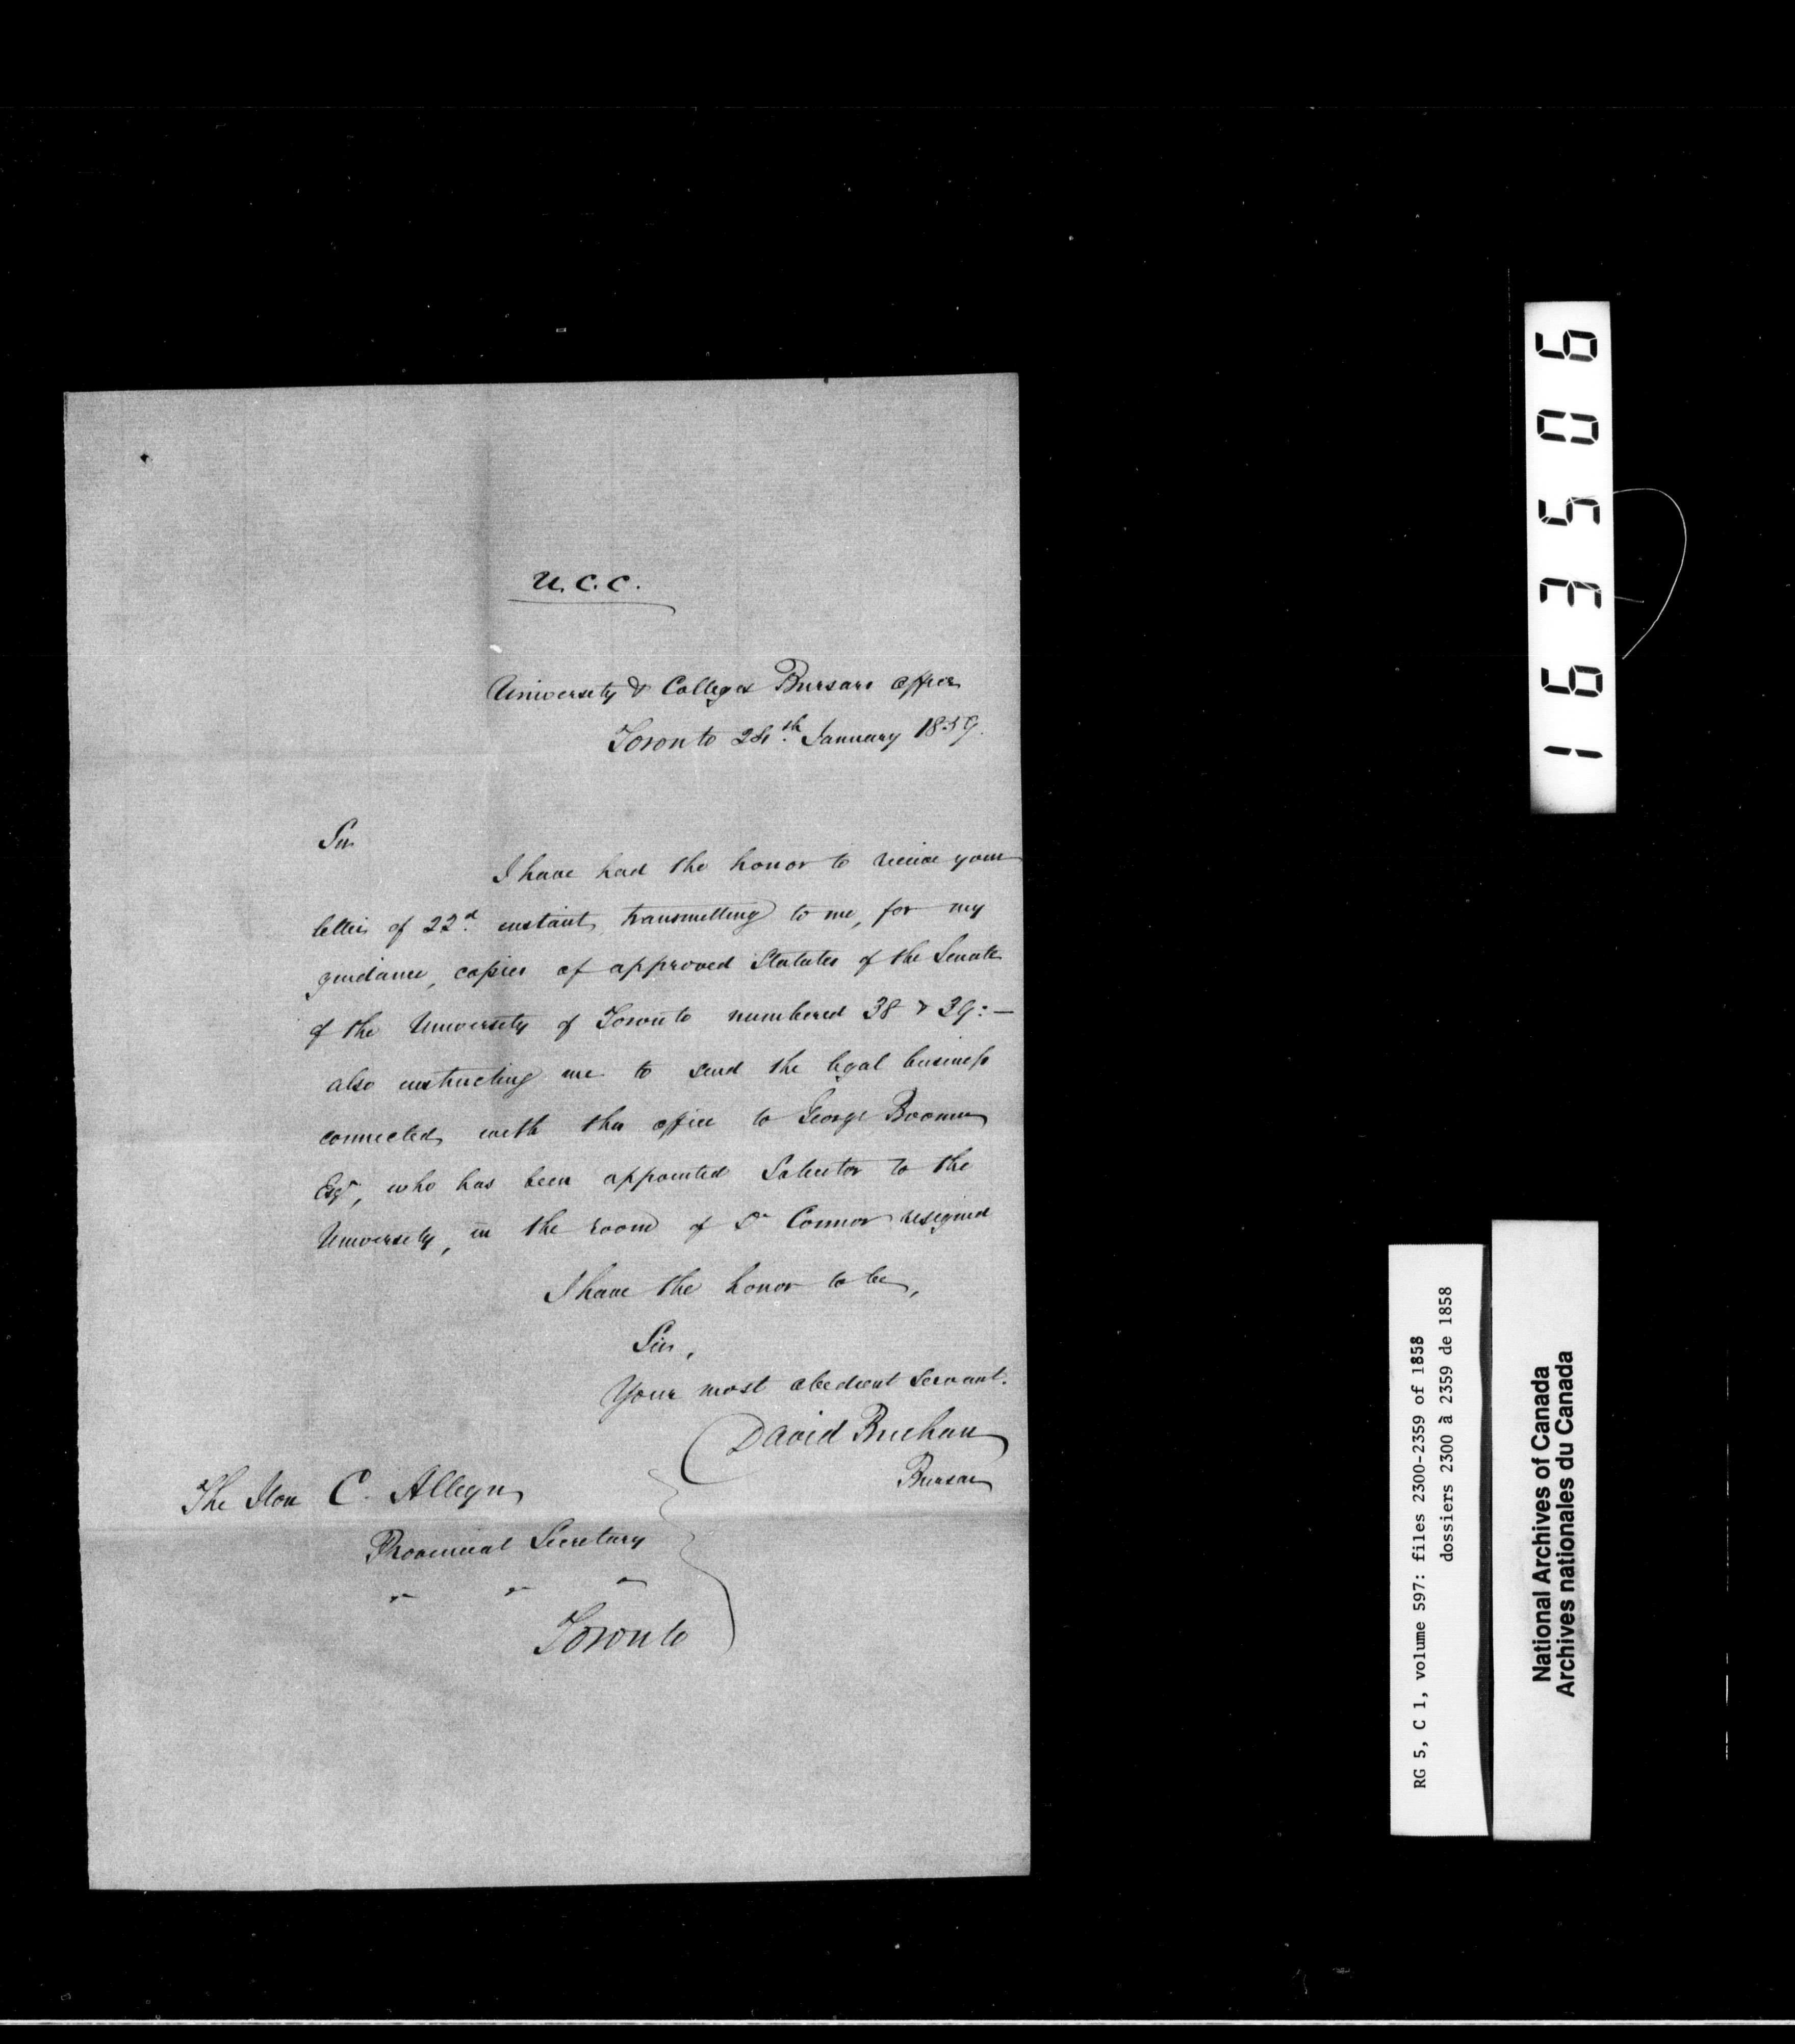 U.C.C.
University & Colleges Bursars Office
Toronto 24th January 1859.
Sir
I have had the honor to receive your
letter of 22d. instant, transmitting to me, for my
guidance, copies of approved Statutes of the Senate
of the University of Toronto numbered 38 & 39:—
also instructing me to send the legal business
connected with this office to George Boomer
Esqr, who has been appointed Solicitor to the
University, in the room of Dr Connor resigned
I have the honor to be,
Sir,
Your most obedient Servant.
David Buchan
Bursar
The Hon C. Alleyn
Provincial Secretary
" " "
Toronto
163506
RG 5, C 1, volume 597: files 2300-2359 of 1858
dossiers 2300 à 2359 de 1858
National Archives of Canada
Archives nationales du Canada